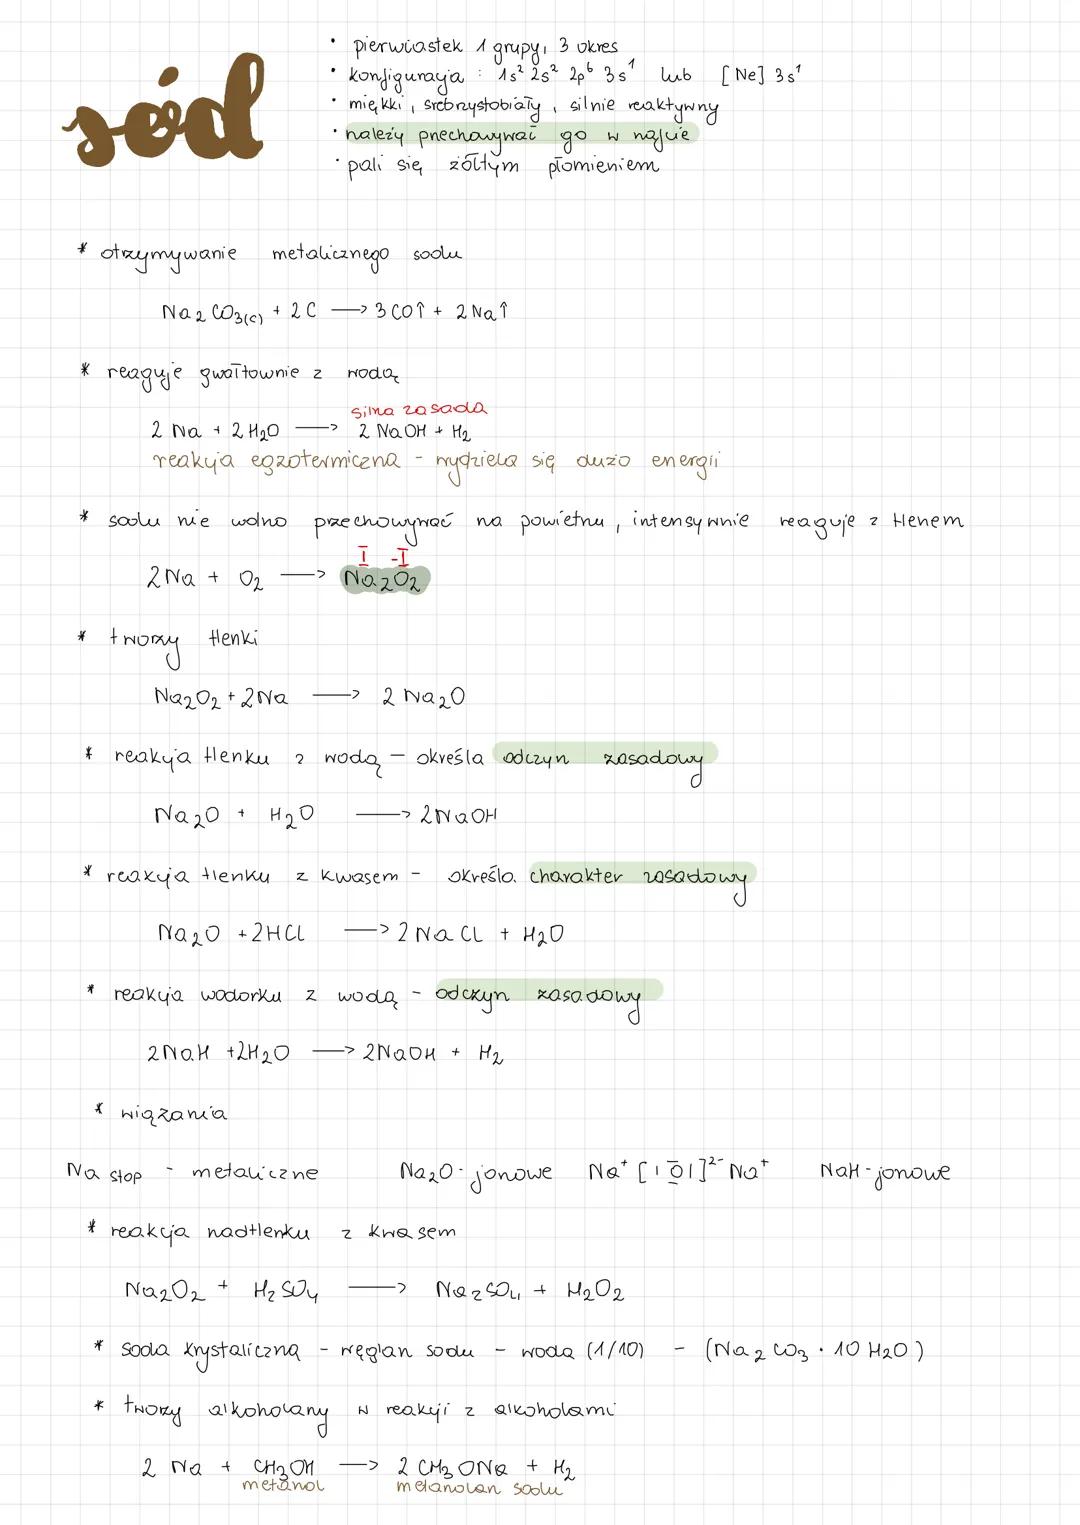 sód
· pierwiastek 1 grupy, 3 okres
· konfiguracja : 1s² 2s² 2p⁶ 3s¹ lub [Ne] 3s¹
· miękki, srebrzystobiały, silnie reaktywny
· należy przechowywać go w nafcie
· pali się żółtym płomieniem
* otrzymywanie metalicznego sodu
Na₂CO₃(c) + 2C → 3CO↑ + 2Na↑
* reaguje gwałtownie z wodą
silna zasada
2 Na + 2H₂O → 2 NaOH + H₂
reakcja egzotermiczna - wydziela się dużo energii
* sodu nie wolno przechowywać na powietrzu, intensywnie reaguje z tlenem
I -I
2Na + O₂ → Na₂O₂
* tworzy tlenki
Na₂O₂ + 2Na → 2 Na₂O
* reakcja tlenku z wodą – określa odczyn zasadowy
Na₂O + H₂O → 2NaOH
* reakcja tlenku z kwasem - określa charakter zasadowy
Na₂O + 2HCl → 2NaCl + H₂O
* reakcja wodorku z wodą - odczyn zasadowy
2NaH + 2H₂O → 2NaOH + H₂
* wiązania
Na stop - metaliczne Na₂O - jonowe Na⁺ [|O̅|]²⁻ Na⁺ NaH - jonowe
* reakcja nadtlenku z kwasem
Na₂O₂ + H₂SO₄ → Na₂SO₄ + H₂O₂
* soda krystaliczna - węglan sodu - woda (1/10) - (Na₂CO₃ · 10H₂O)
* tworzy alkoholany w reakcji z alkoholami
2 Na + CH₃OH → 2 CH₃ONa + H₂
metanol metanolan sodu